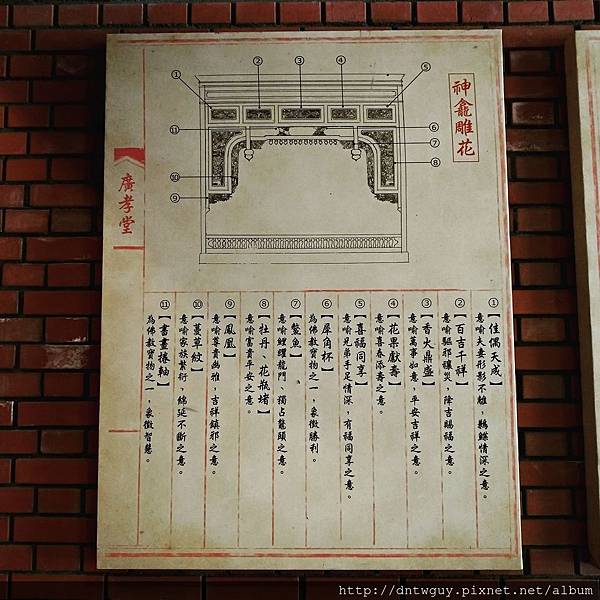 神龕雕花
① ② ③ ④ ⑤ ⑥ ⑦ ⑧ ⑨ ⑩ ⑪
廣孝堂
①【佳偶天成】
意喻夫妻形影不離，鶼鰈情深之意。
②【百吉千祥】
意喻驅邪禳災、降吉賜福之意。
③【香火鼎盛】
意喻萬事如意、平安吉祥之意。
④【花果獻壽】
意喻喜春添壽之意。
⑤【喜福同享】
意喻兄弟手足情深，有福同享之意。
⑥【犀角杯】
為佛教寶物之一，象徵勝利。
⑦【鰲魚】
意喻鯉躍龍門、獨占鰲頭之意。
⑧【牡丹、花瓶堵】
意喻富貴平安之意。
⑨【鳳凰】
意喻尊貴幽雅，吉祥鎮邪之意。
⑩【蔓草紋】
意喻家族繁衍，綿延不斷之意。
⑪【書畫捲軸】
為佛教寶物之一，象徵智慧。
http://dntwguy.pixnet.net/album